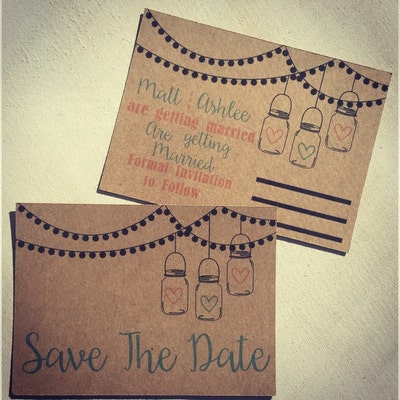 Matt & Ashlee
are getting married
Are getting
Married
Formal Invitation
to Follow
Save The Date